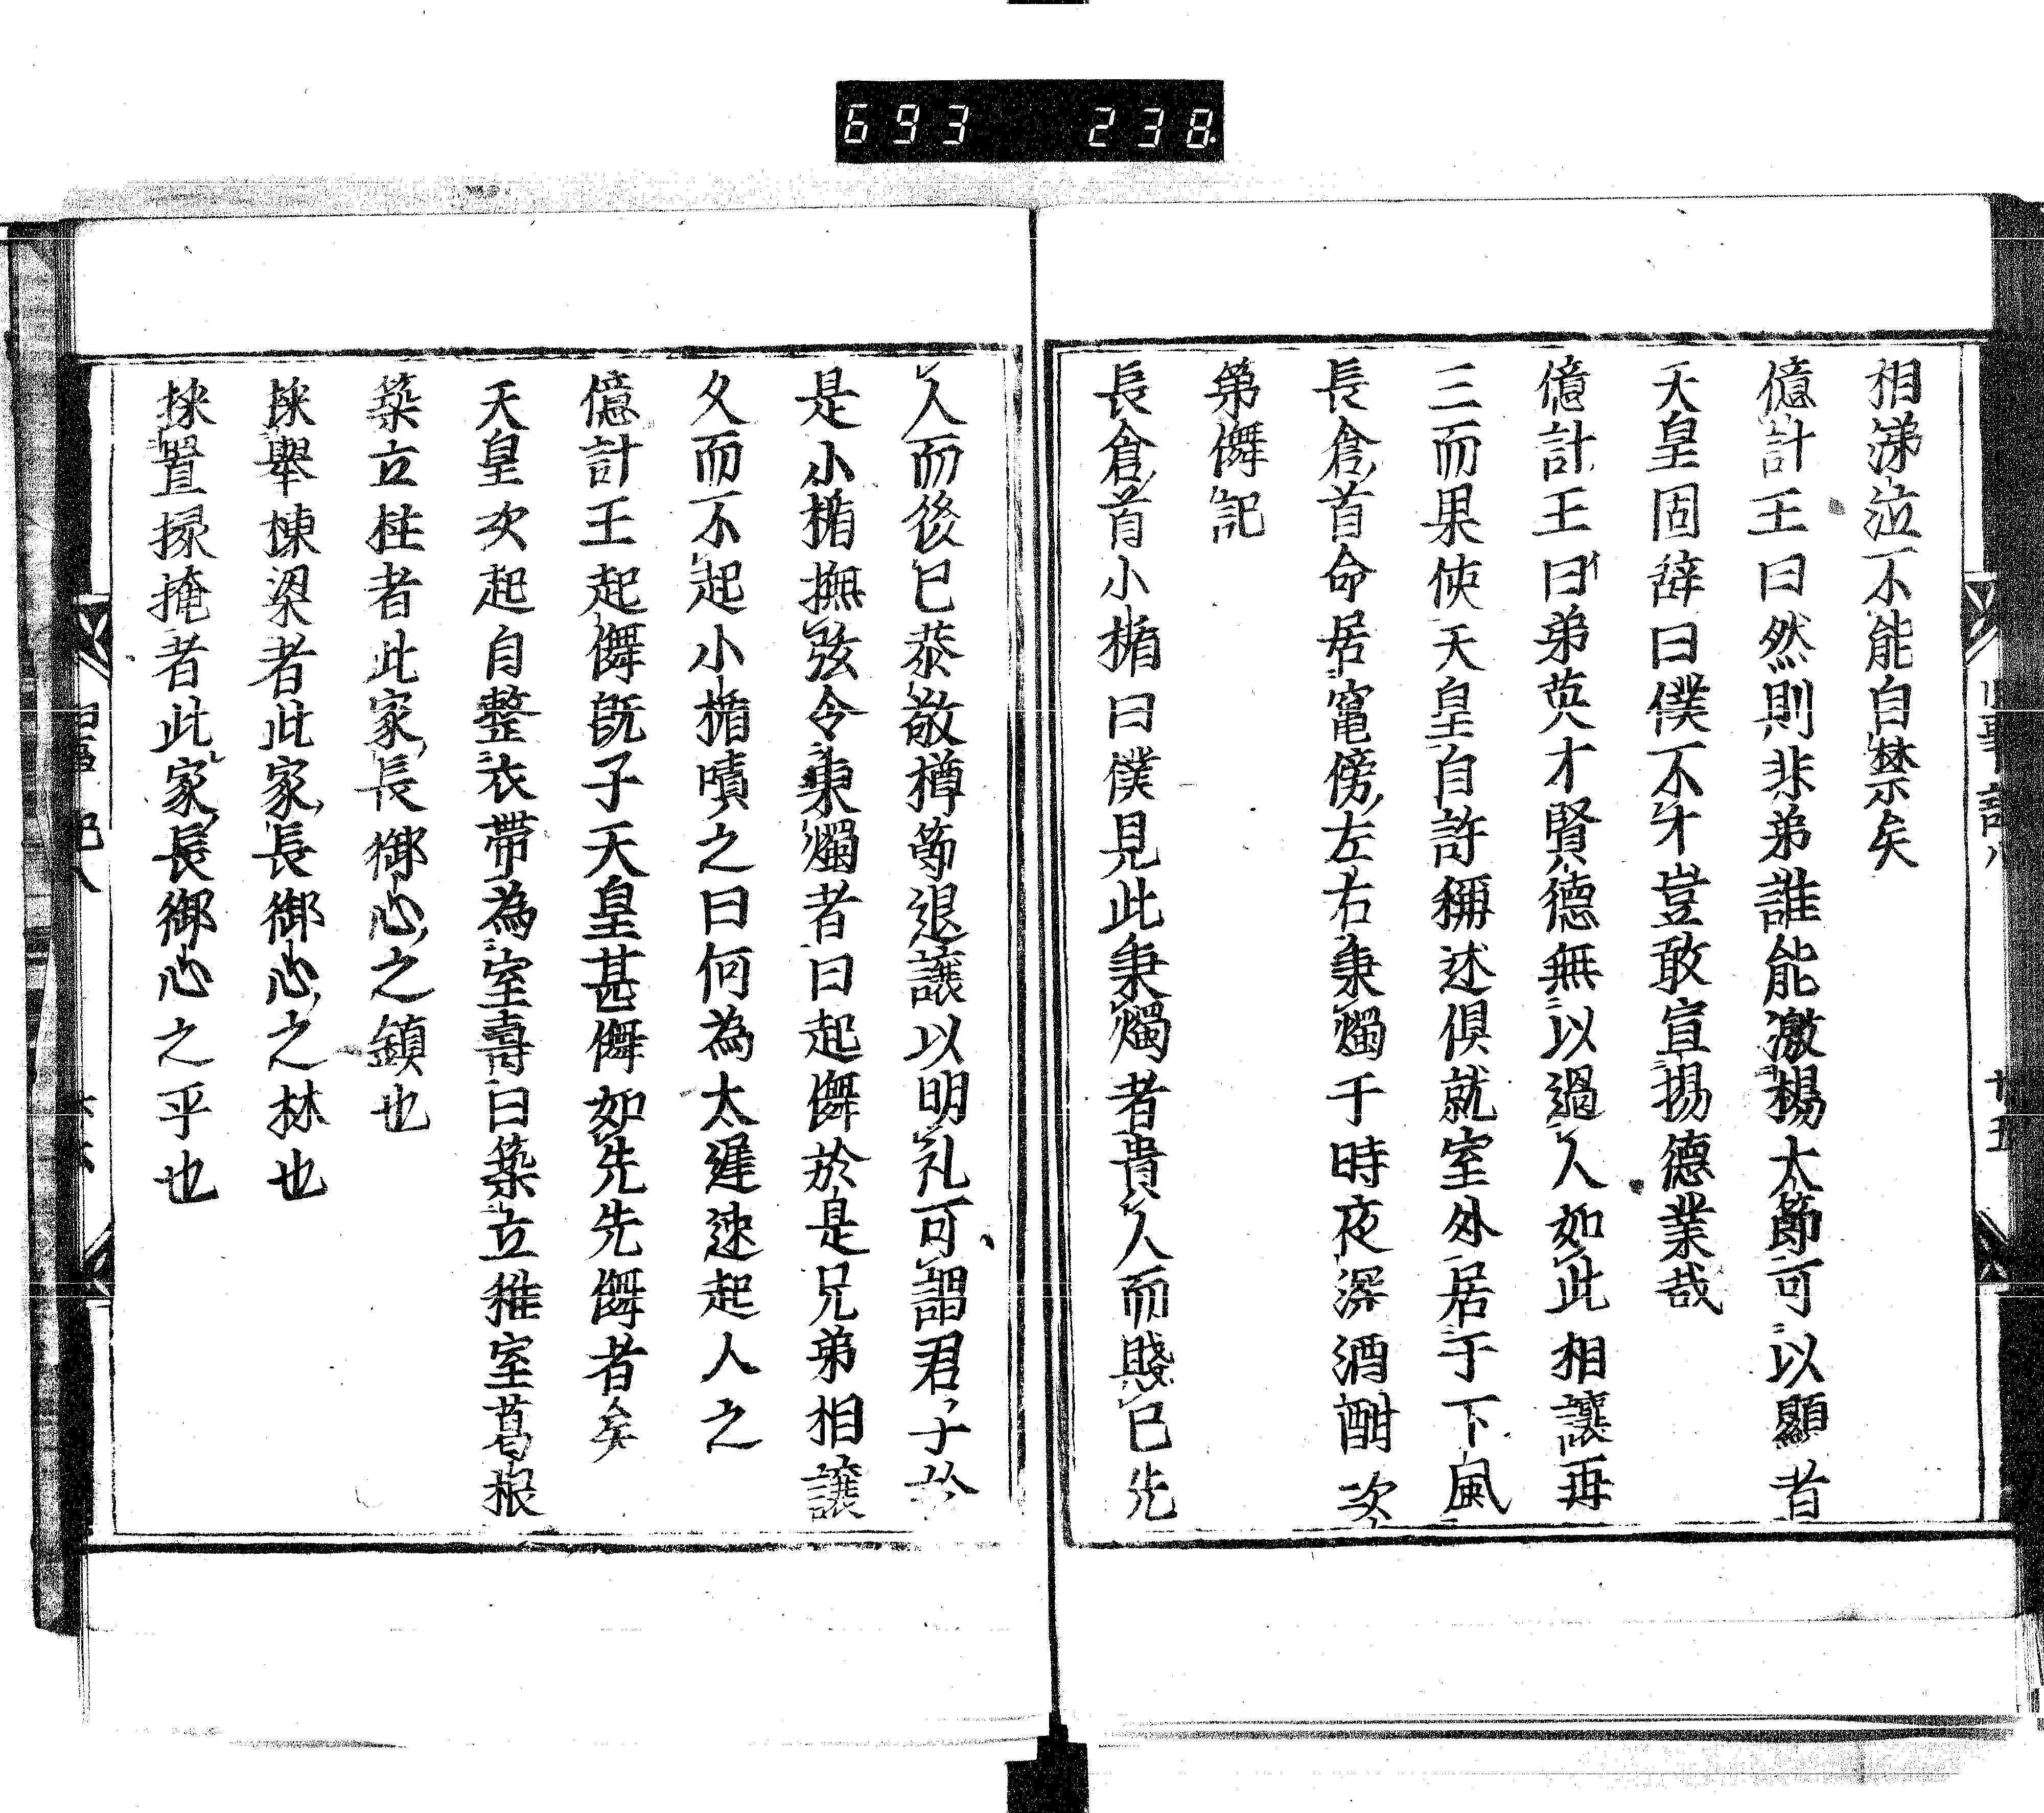 693 238
相涕泣不能自禁矣
億計王曰然則非弟誰能激楊太節可以顯者
天皇固辞曰僕不才豈敢宣揚德業哉
億計王曰弟英才賢德無以過人如此相讓再
三而果使天皇自許稱述俱就室外居于下風
長倉首命居竃傍左右秉燭于時夜深酒酣次
第儛記
長倉首小楯曰僕見此秉燭者貴人而賤已先
人而後已恭敬樽節退讓以明礼可謂君子於
是小楯撫弦令秉燭者曰起儛於是兄弟相讓
久而不起小楯嘖之曰何為太遲速起人之
億計王起儛既子天皇甚儛如先先儛者矣
天皇次起自整衣帶為室壽曰築立稚室葛根
築立柱者此家長御心之鎮也
採舉棟梁者此家長御心之林也
採置掾掩者此家長御心之乎也